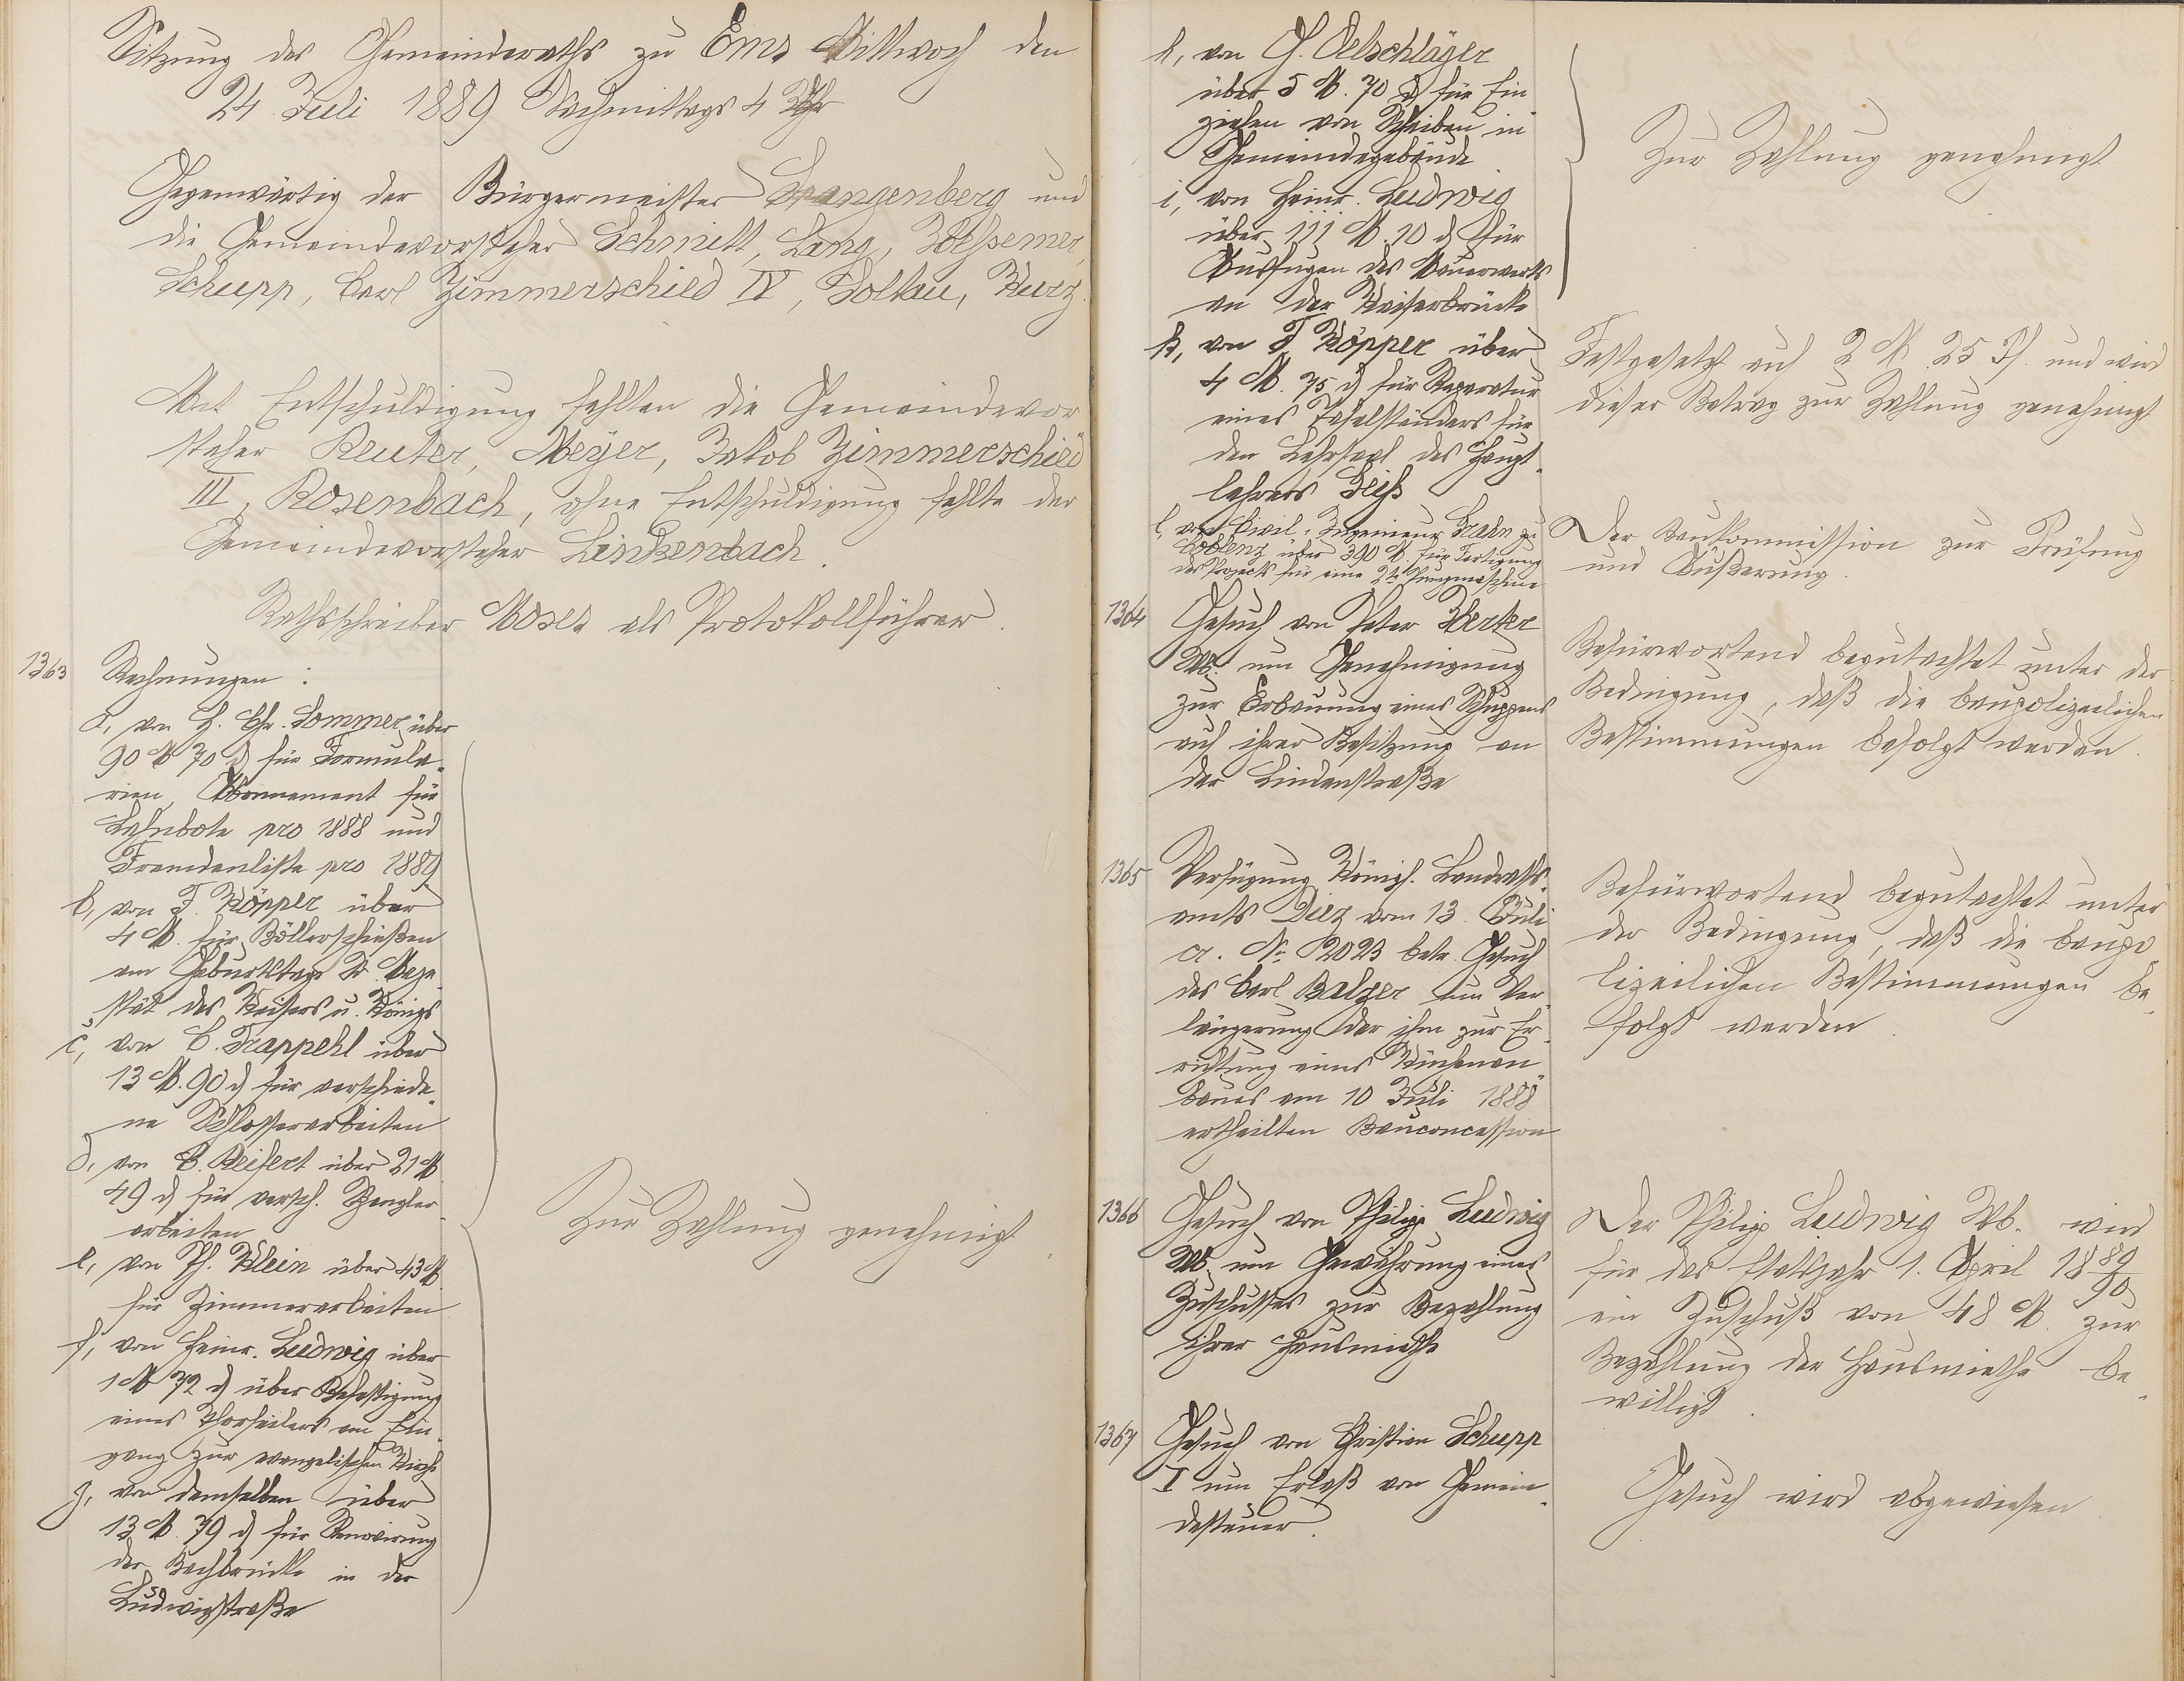 Sitzung des Gemeinderaths zu Ems Mittwoch den
24 Juli 1889 Nachmittags 4 Uhr
Gegenwärtig der Bürgermeister Spangenberg und
die Gemeindevorsteher Schmitt, Lang,
Schupp, Carl Zimmerschied IV, Soltau, Kurz.
Mit Entschuldigung fehlten die Gemeindevor
steher Reuter, Meyer, Jakob Zimmerschied
III, Rosenbach, ohne Entschuldigung fehlte der
Gemeindevorsteher Linkenbach.
Rathsschreiber Moses als Protokollführer.
1363 Rechnungen:
a, von H. Chr. Sommer über
90 M 70 d für Formula-
rien, Abonnement für
Lahnbote pro 1888 und
Fremdenliste pro 1889
b, von F. Köpper über
4 M. für Böllerschießen
am Geburtstage Sr. Maje-
stät des Kaisers u. Königs
c, von C. Trappehl über
13 M. 90 d für verschiede-
ne Schlosserarbeiten
d, von C. Reifert über 21 M
49 d für versch. Spengler-
arbeiten
e, von Ph. Klein über 43 M
für Zimmerarbeiten
f, von Heinr. Ludwig über
1 M 72 d über Befestigung
eines Thorpfeilers am Ein-
gang zur evangelischen Kirche
g, von demselben über
13 M. 79 d für Renovirung
der Bachbrücke in der
Ludwigstraße
Zur Zahlung genehmigt.
h, von G. Oelschläger
über 5 M. 70 d für Ein
ziehen von Scheiben in
Gemeindegebäude
i, von Heinr. Ludwig
über 111 M. 10 d für
Ausfugen des Mauerwerks
an der Kaiserbrücke
Zur Zahlung genehmigt
k, von F Köpper über
4 M. 75 d für Reparatur
eines Tafelständers für
den Lehrsaal des Haupt-
lehrers
Festgesetzt auf 2 M 25 Pf. und wird
dieser Betrag zur Zahlung genehmigt
l, von Civil-Ingenieur Grahn zu
Coblenz über 390 M. für Fertigung
des Projects für eine 2te Pumpmaschine
Der Baukommission zur Prüfung
und Äußerung.
1364 Gesuch von Peter Herter
Wb. um Genehmigung
zur Erbauung eines Schuppens
auf ihrer Besitzung an
der Lindenstraße
Befürwortend begutachtet unter der
Bedingung, daß die baupolizeilichen
Bestimmungen befolgt werden.
1365 Verfügung Königl. Landraths-
amts Diez vom 13. Juli
cr. No 2023 betr. Gesuch
des Carl Balzer um Ver-
längerung der ihm zur Er-
richtung eines Küchenan-
baues am 10 Juli 1888
ertheilten Bauconcession
Befürwortend begutachtet unter
der Bedingung, daß die baupo-
lizeilichen Bestimmungen be-
folgt werden.
1366 Gesuch von Philipp Ludwig
Wb. um Gewährung eines
Zuschusses zur Bezahlung
ihrer Hausmiethe
Der Philipp Ludwig Wb. wird
für das Etatsjahr 1. April 1889/90
ein Zuschuß von 48 M. zur
Bezahlung der Hausmiethe be-
willigt.
1367 Gesuch von Christian Schupp
I um Erlaß von Gemein-
desteuer.
Gesuch wird abgewiesen.